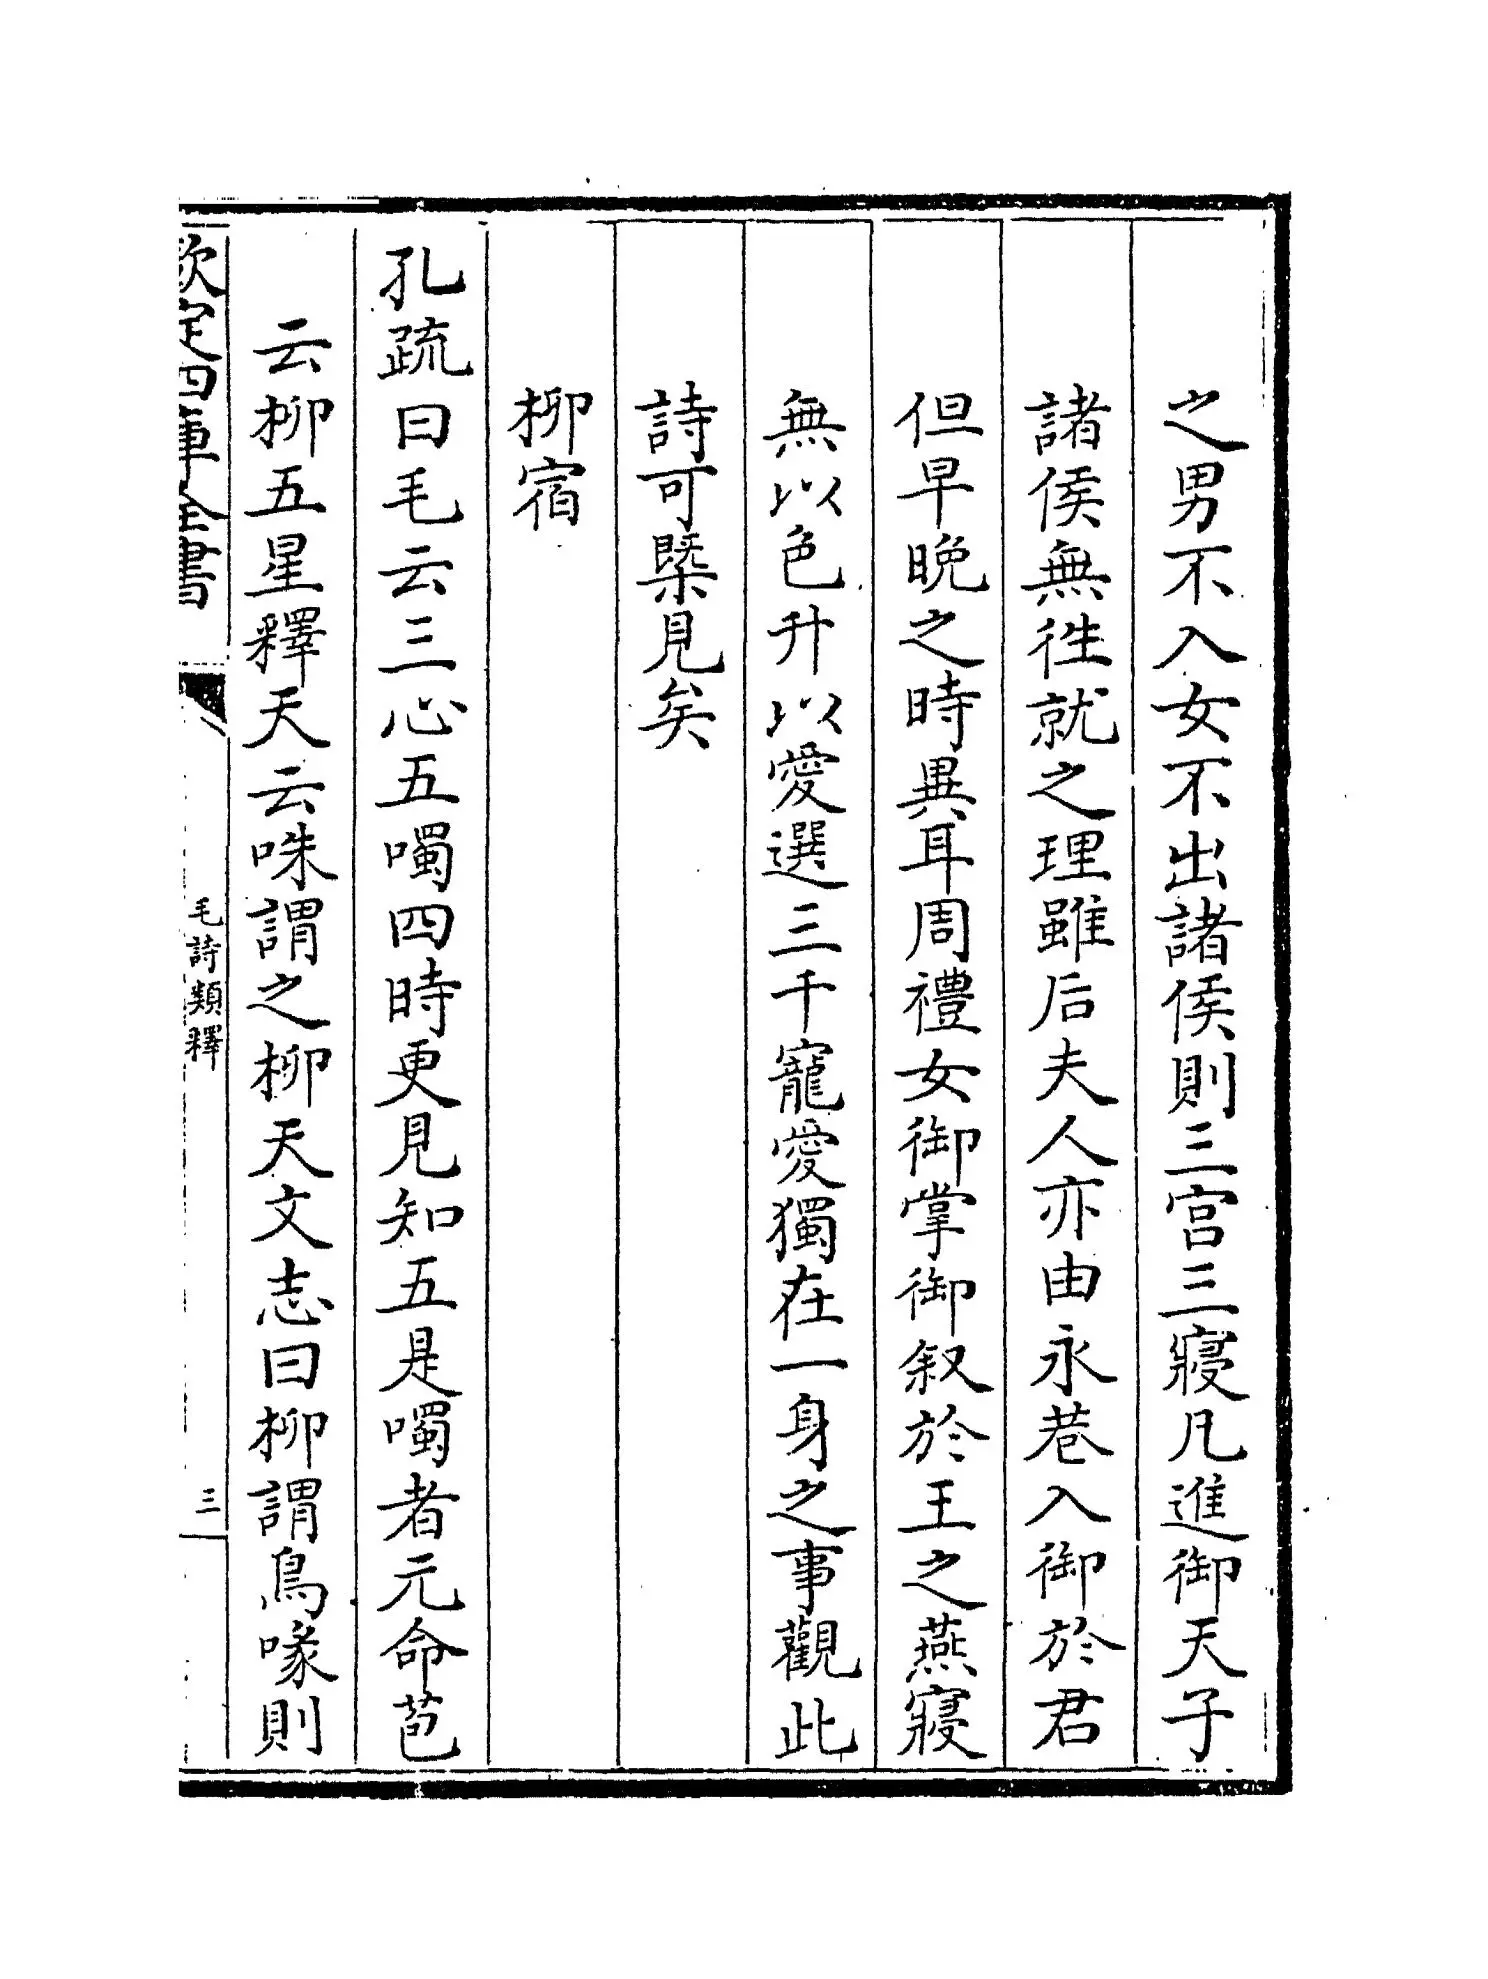 之男不入女不出諸侯則三宫三寢凡進御天子
諸侯無徃就之理雖后夫人亦由永巷入御於君
但早晚之時異耳周禮女御掌御叙於王之燕寢
無以色升以愛選三千寵愛獨在一身之事觀此
詩可槩見矣
柳宿
孔疏曰毛云三心五噣四時更見知五是噣者元命苞
云柳五星釋天云咮謂之柳天文志曰柳謂鳥喙則
欽定四庫全書
毛詩類釋
三